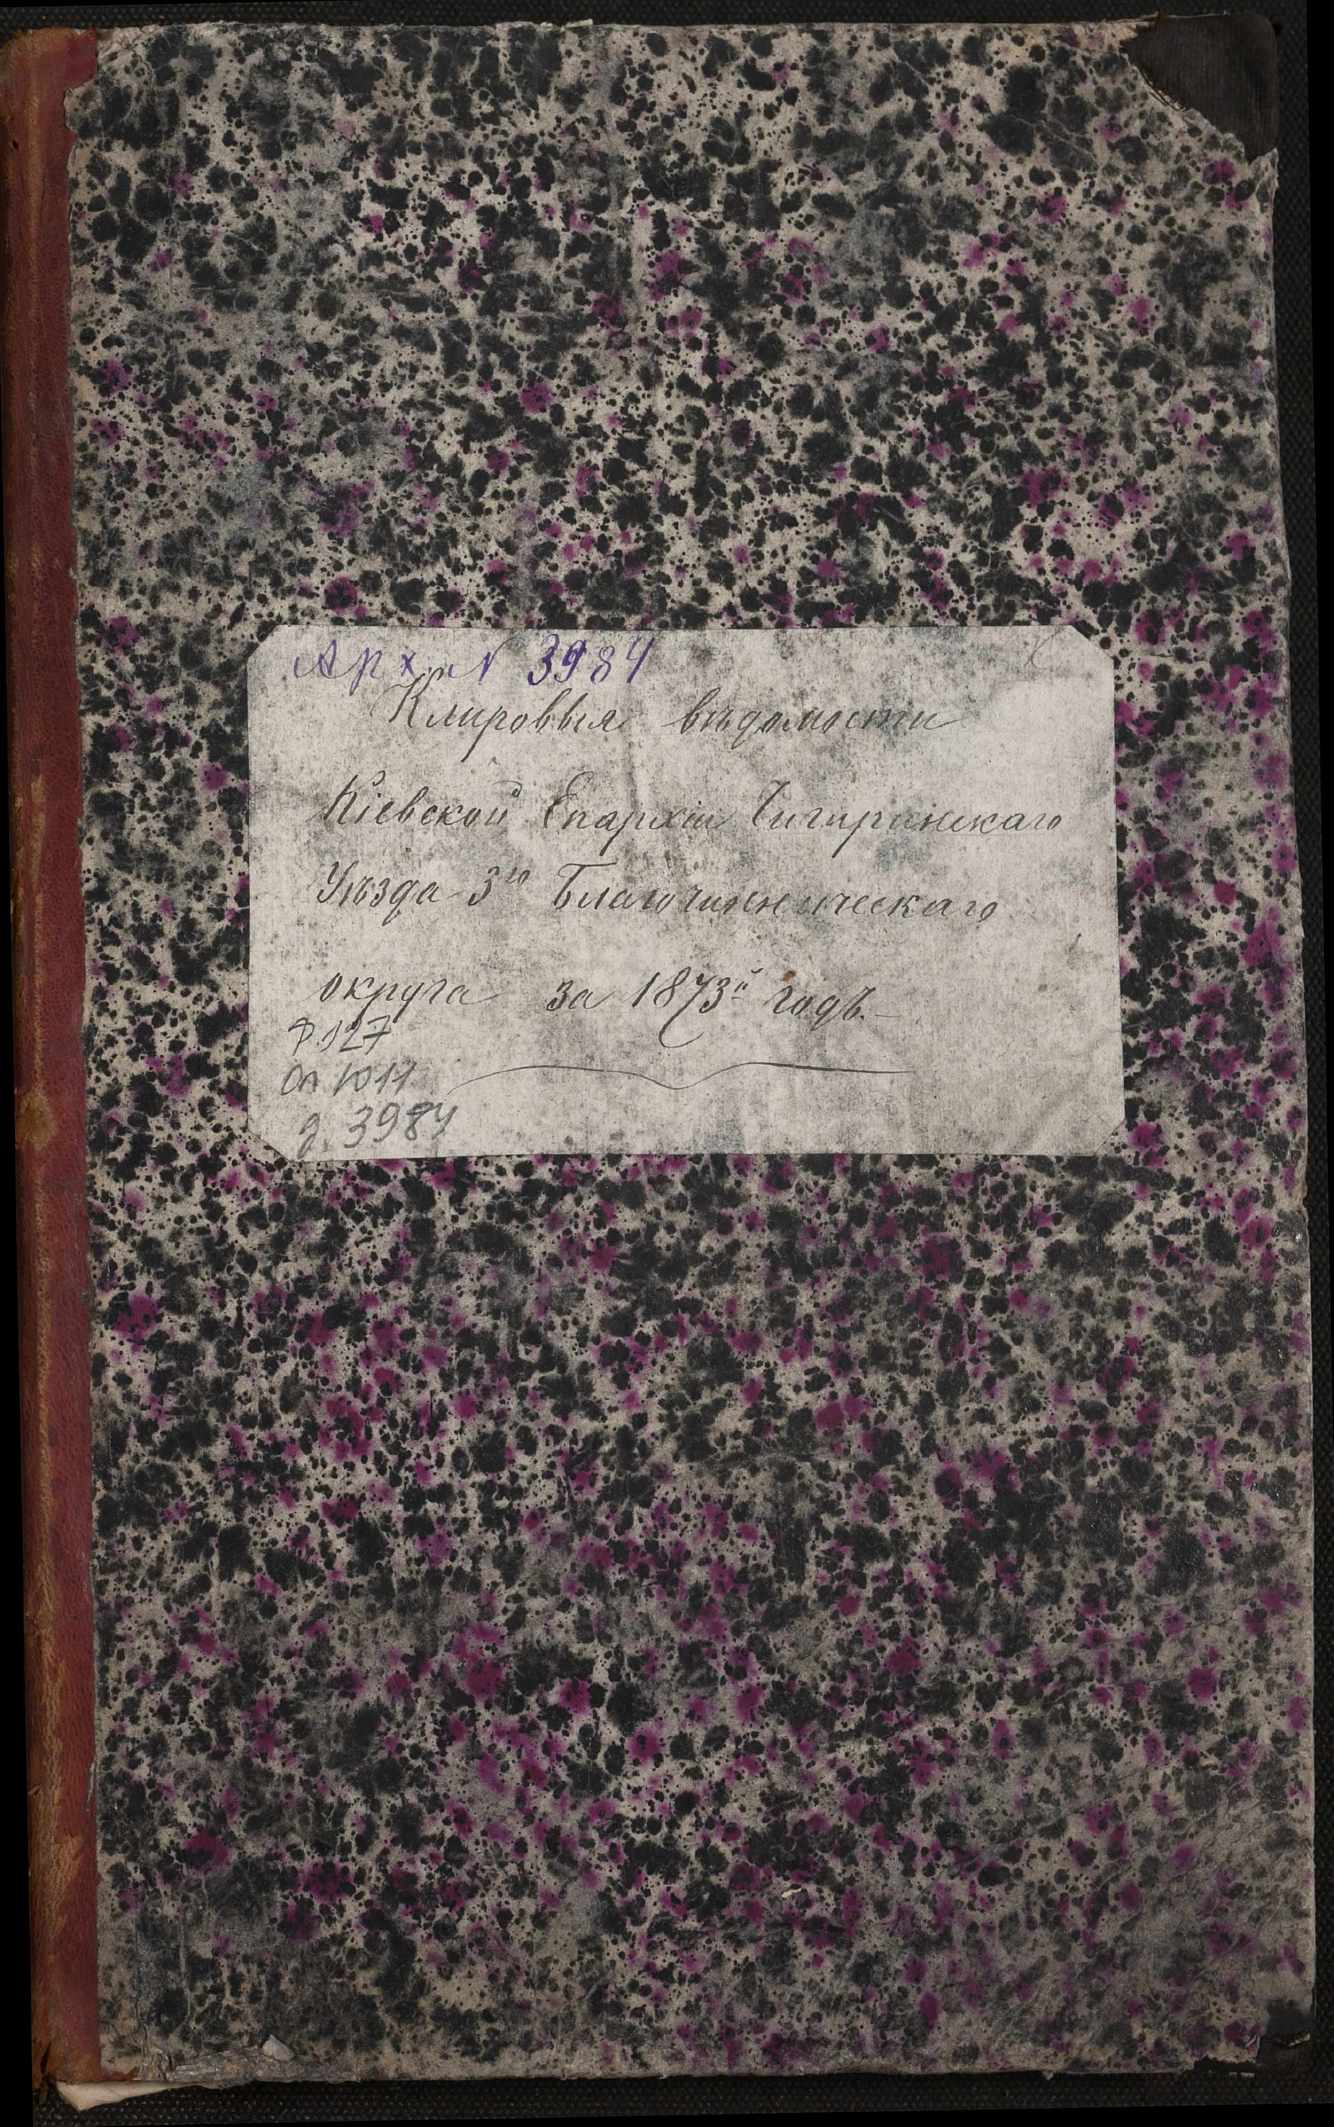 Арх. № 3984
Клировыя вѣдомости
Кіевской Епархіи Чигиринскаго
Уѣзда 3го Благочинническаго
округа за 1873й годъ.
Ф 127
Оп 1011
д. 3984